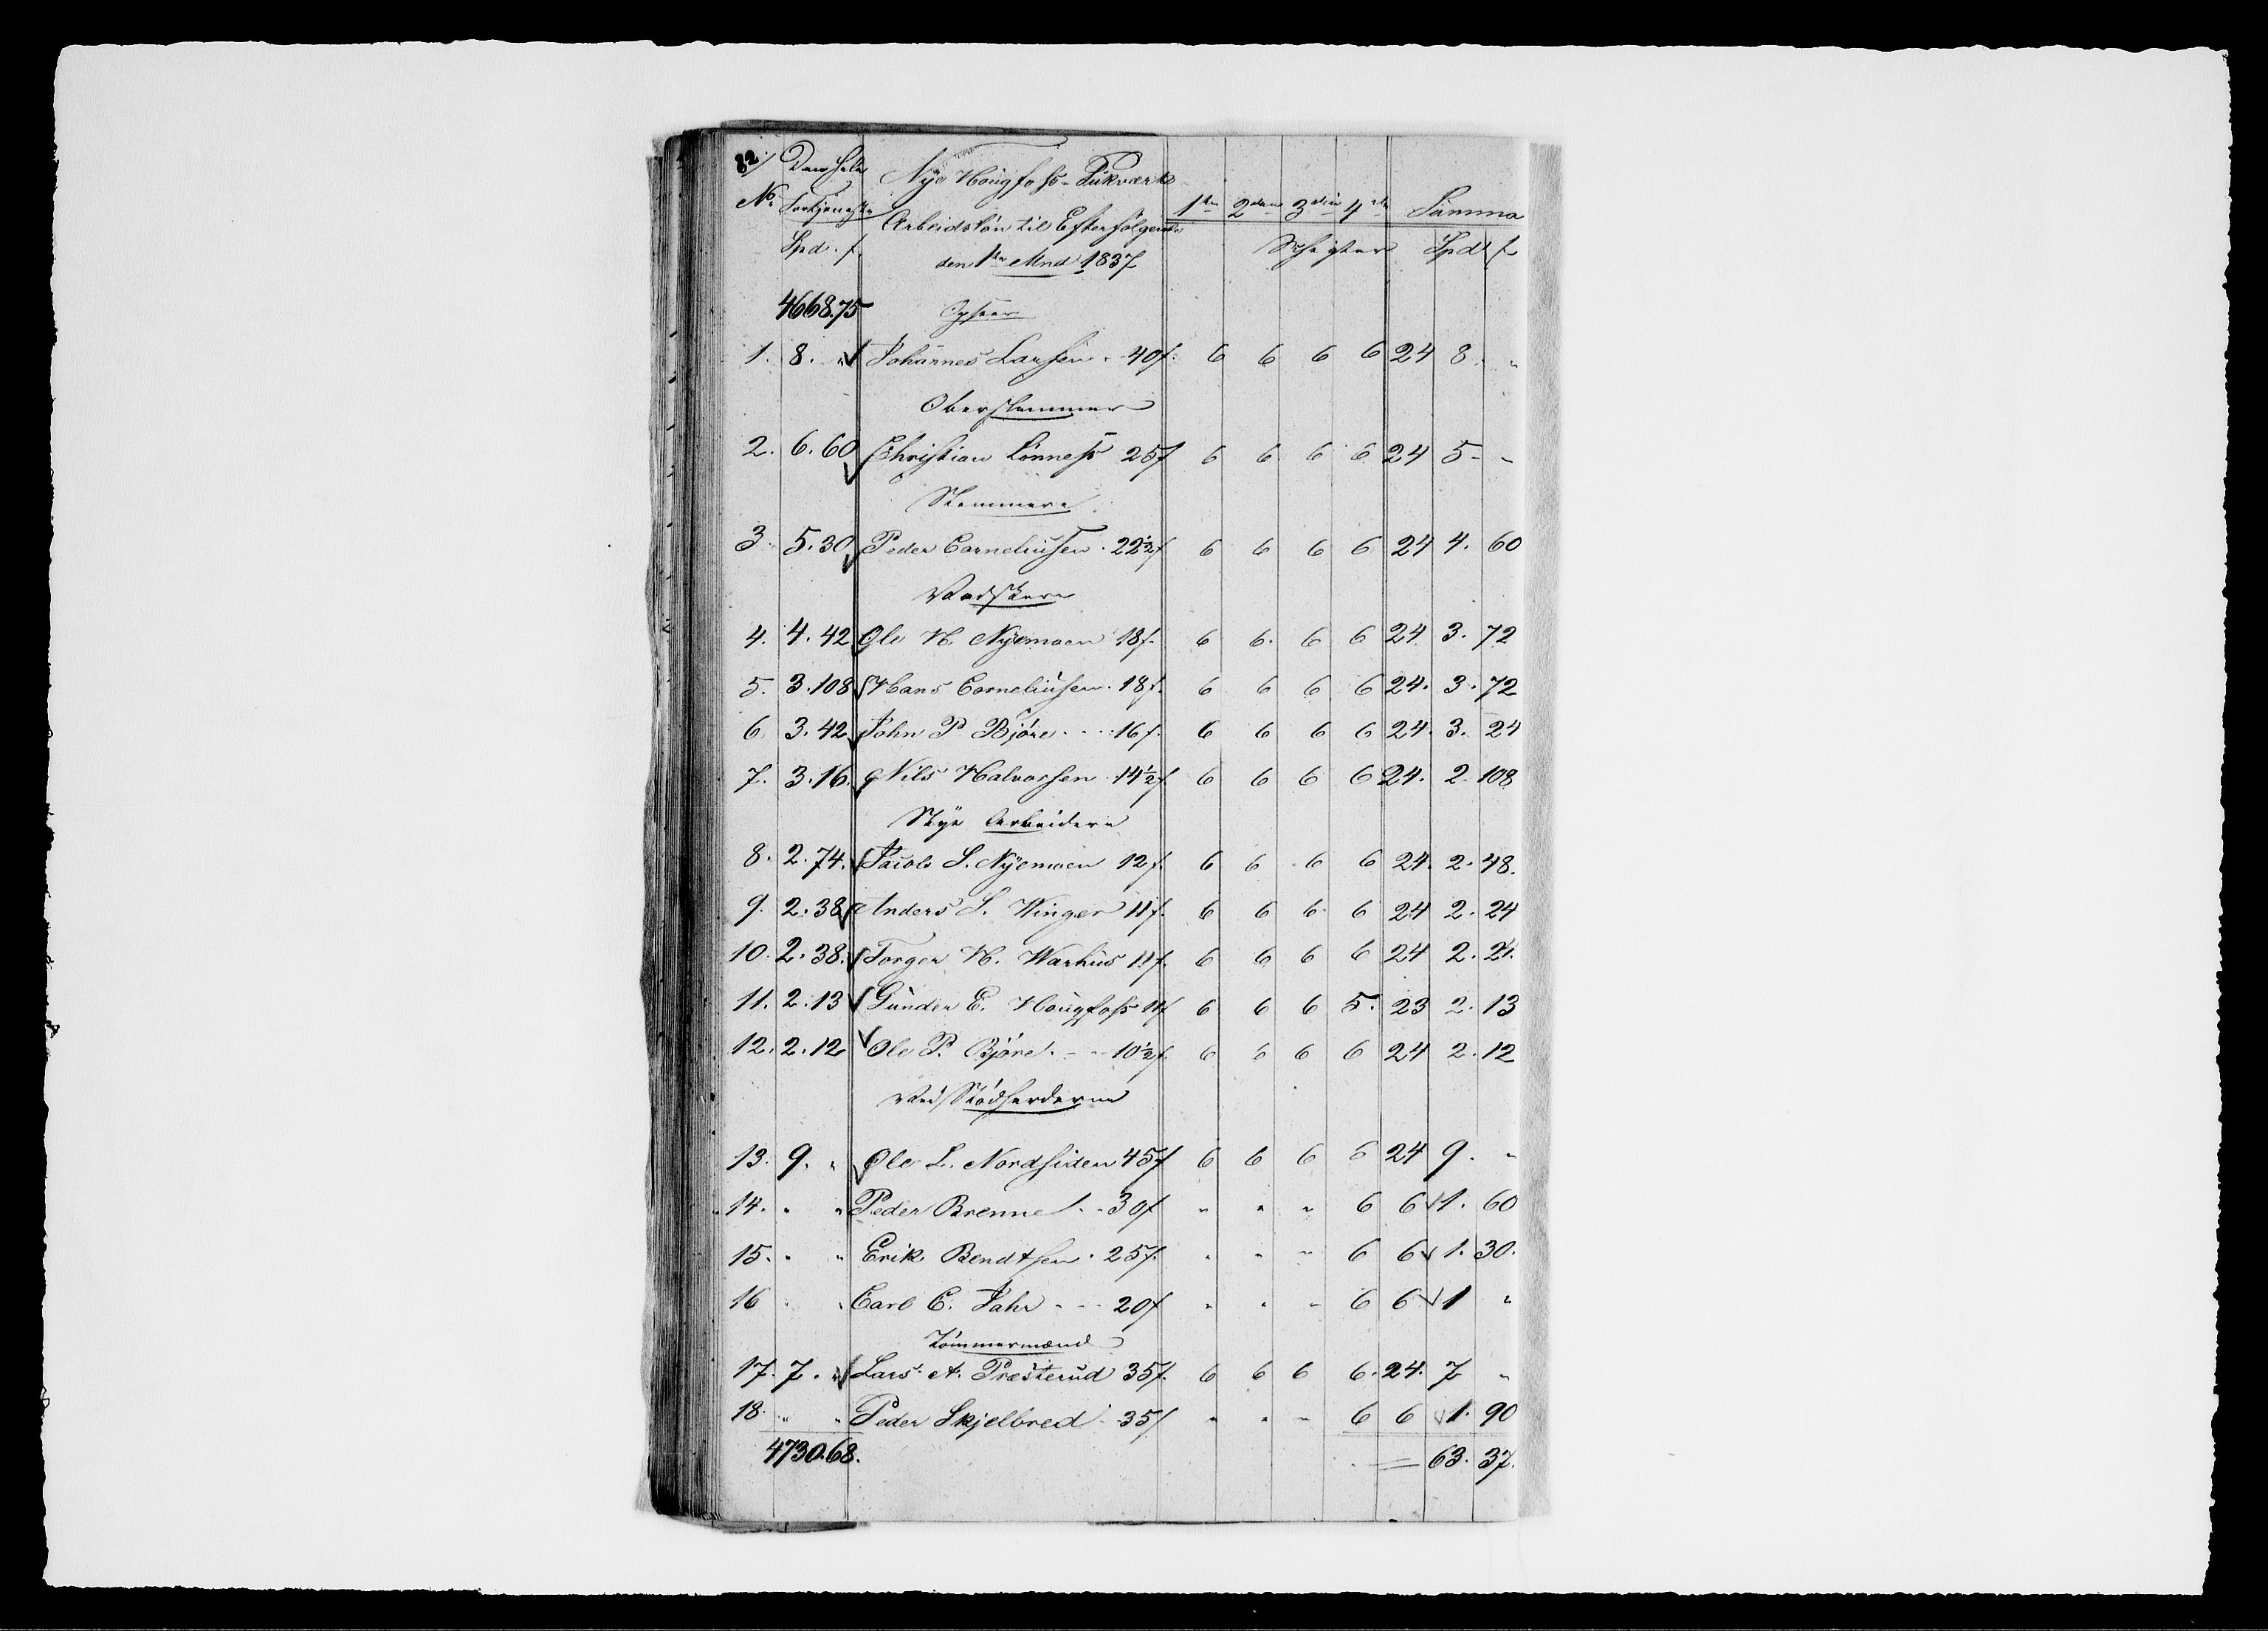 82/ Den hele Nÿe Hougfoss Pukværks
No Fortjeneste Arbeidslön til Efterfölgende 1ste 2den 3die 4de Summa
Spd. f. den 1ste Mnd 1837 Schigter Spd f
4668.75 Opseer
1. 8. " Johannes Larsen . 40f. 6 6 6 6 24 8. "
2. 6.60 Christian Lönness 25f 6 6 6 6 24 5 - -
3. 5.30 Peder Corneliusen . 22½f 6 6 6 6 24 4. 60
Vadskere
4. 4.42 Ole H. Nÿemoen 18f. 6 6. 6 6 24 3. 72
5. 3.108 Hans Corneliusen . 18f. 6 6 6 6 24. 3. 72
6 3.42 John P Björe . . . 16f. 6 6 6 6 24. 3. 24
7. 3.16. Nils Halvorsen . 14½f. 6 6 6 6 24. 2. 108
Arbeidere
8. 2.74. Jacob S. Nÿemoen 12f. 6 6 6 6 24. 2. 48.
9. 2.38 Anders S. Winger 11f. 6 6 6 6 24 2. 24
10. 2.38. Torger H. Warhus 11f. 6 6 6 6 24 2. 24.
11. 2.13 Gunder E. Hougfoss 11f 6 6 6 5. 23 2. 13
12. 2.12 Ole P. Björe . - - 10½f. 6 6 6 6 24 2. 12
Ved Stödherderne
13. 9. " Ole L. Nordsiden 45f 6 6 6 6 24 9. "
14. " " Peder Brenne . - 30f " " " 6 6 1. 60
15. " " Erik Bendtsen . 25f. " " " 6 6 1. 30.
16 " Carl C. Jahr - - - 20f " " " 6 6 1 "
Tömmermænd
17. 7. " Lars A. Præsterud 35f. 6 6 6 6. 24. 7 "
18. " " Peder Skjelbred . 35f " " " 6 6 1. 90
4730.68. 63. 37.